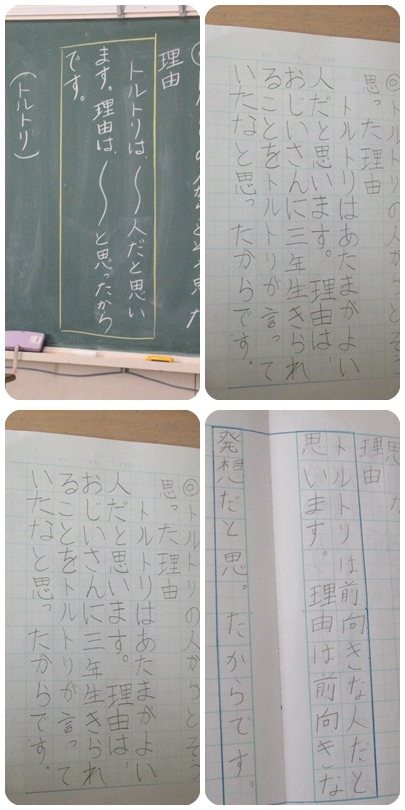 理由
トルトリは、〜〜人だと思い
ます。理由は、〜〜と思ったから
です。
(トルトリ)
思った理由
トルトリはあたまがよい
人だと思います。理由は、
おじいさんに三年生きられ
ることをトルトリが言って
いたなと思ったからです。
◎トルトリの人がらとそう
思った理由
トルトリはあたまがよい
人だと思います。理由は、
おじいさんに三年生きられ
ることをトルトリが言って
いたなと思ったからです。
理由
トルトリは前向きな人だと
思います。理由は前向きな
発想だと思ったからです。